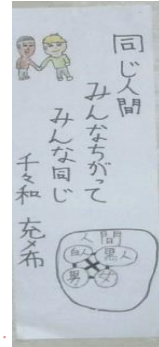 同じ人間
みんなちがって
みんな同じ
千々和 充〆布
人間
白人
黒人
男
女